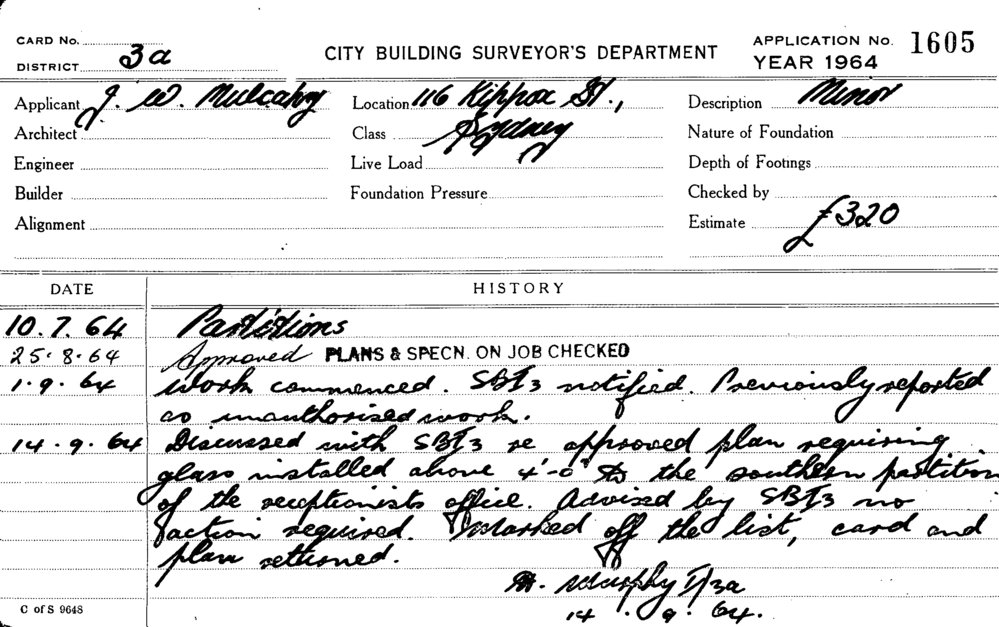 CARD No.
DISTRICT 3a
CITY BUILDING SURVEYOR'S DEPARTMENT
APPLICATION No. 1605
YEAR 1964
Applicant J. W. Mulcahy
Location 116 Kippax St.,
Description Minor
Architect
Class Sydney
Nature of Foundation
Engineer
Live Load
Depth of Footings
Builder
Foundation Pressure
Checked by
Alignment
Estimate £320
DATE HISTORY
10.7.64 Partitions
25.8.64 Approved PLANS & SPECN. ON JOB CHECKED
1.9.64 Work commenced. SBI3 notified. Previously reported
as unauthorised work.
14.9.64 Discussed with SBI3 re approved plan requiring
glass installed above 4'-0" to the southern partition
of the receptionists office. Advised by SBI3 no
action required. Marked off the list, card and
plan returned.
M. Murphy I/3a
14.9.64.
C of S 9648